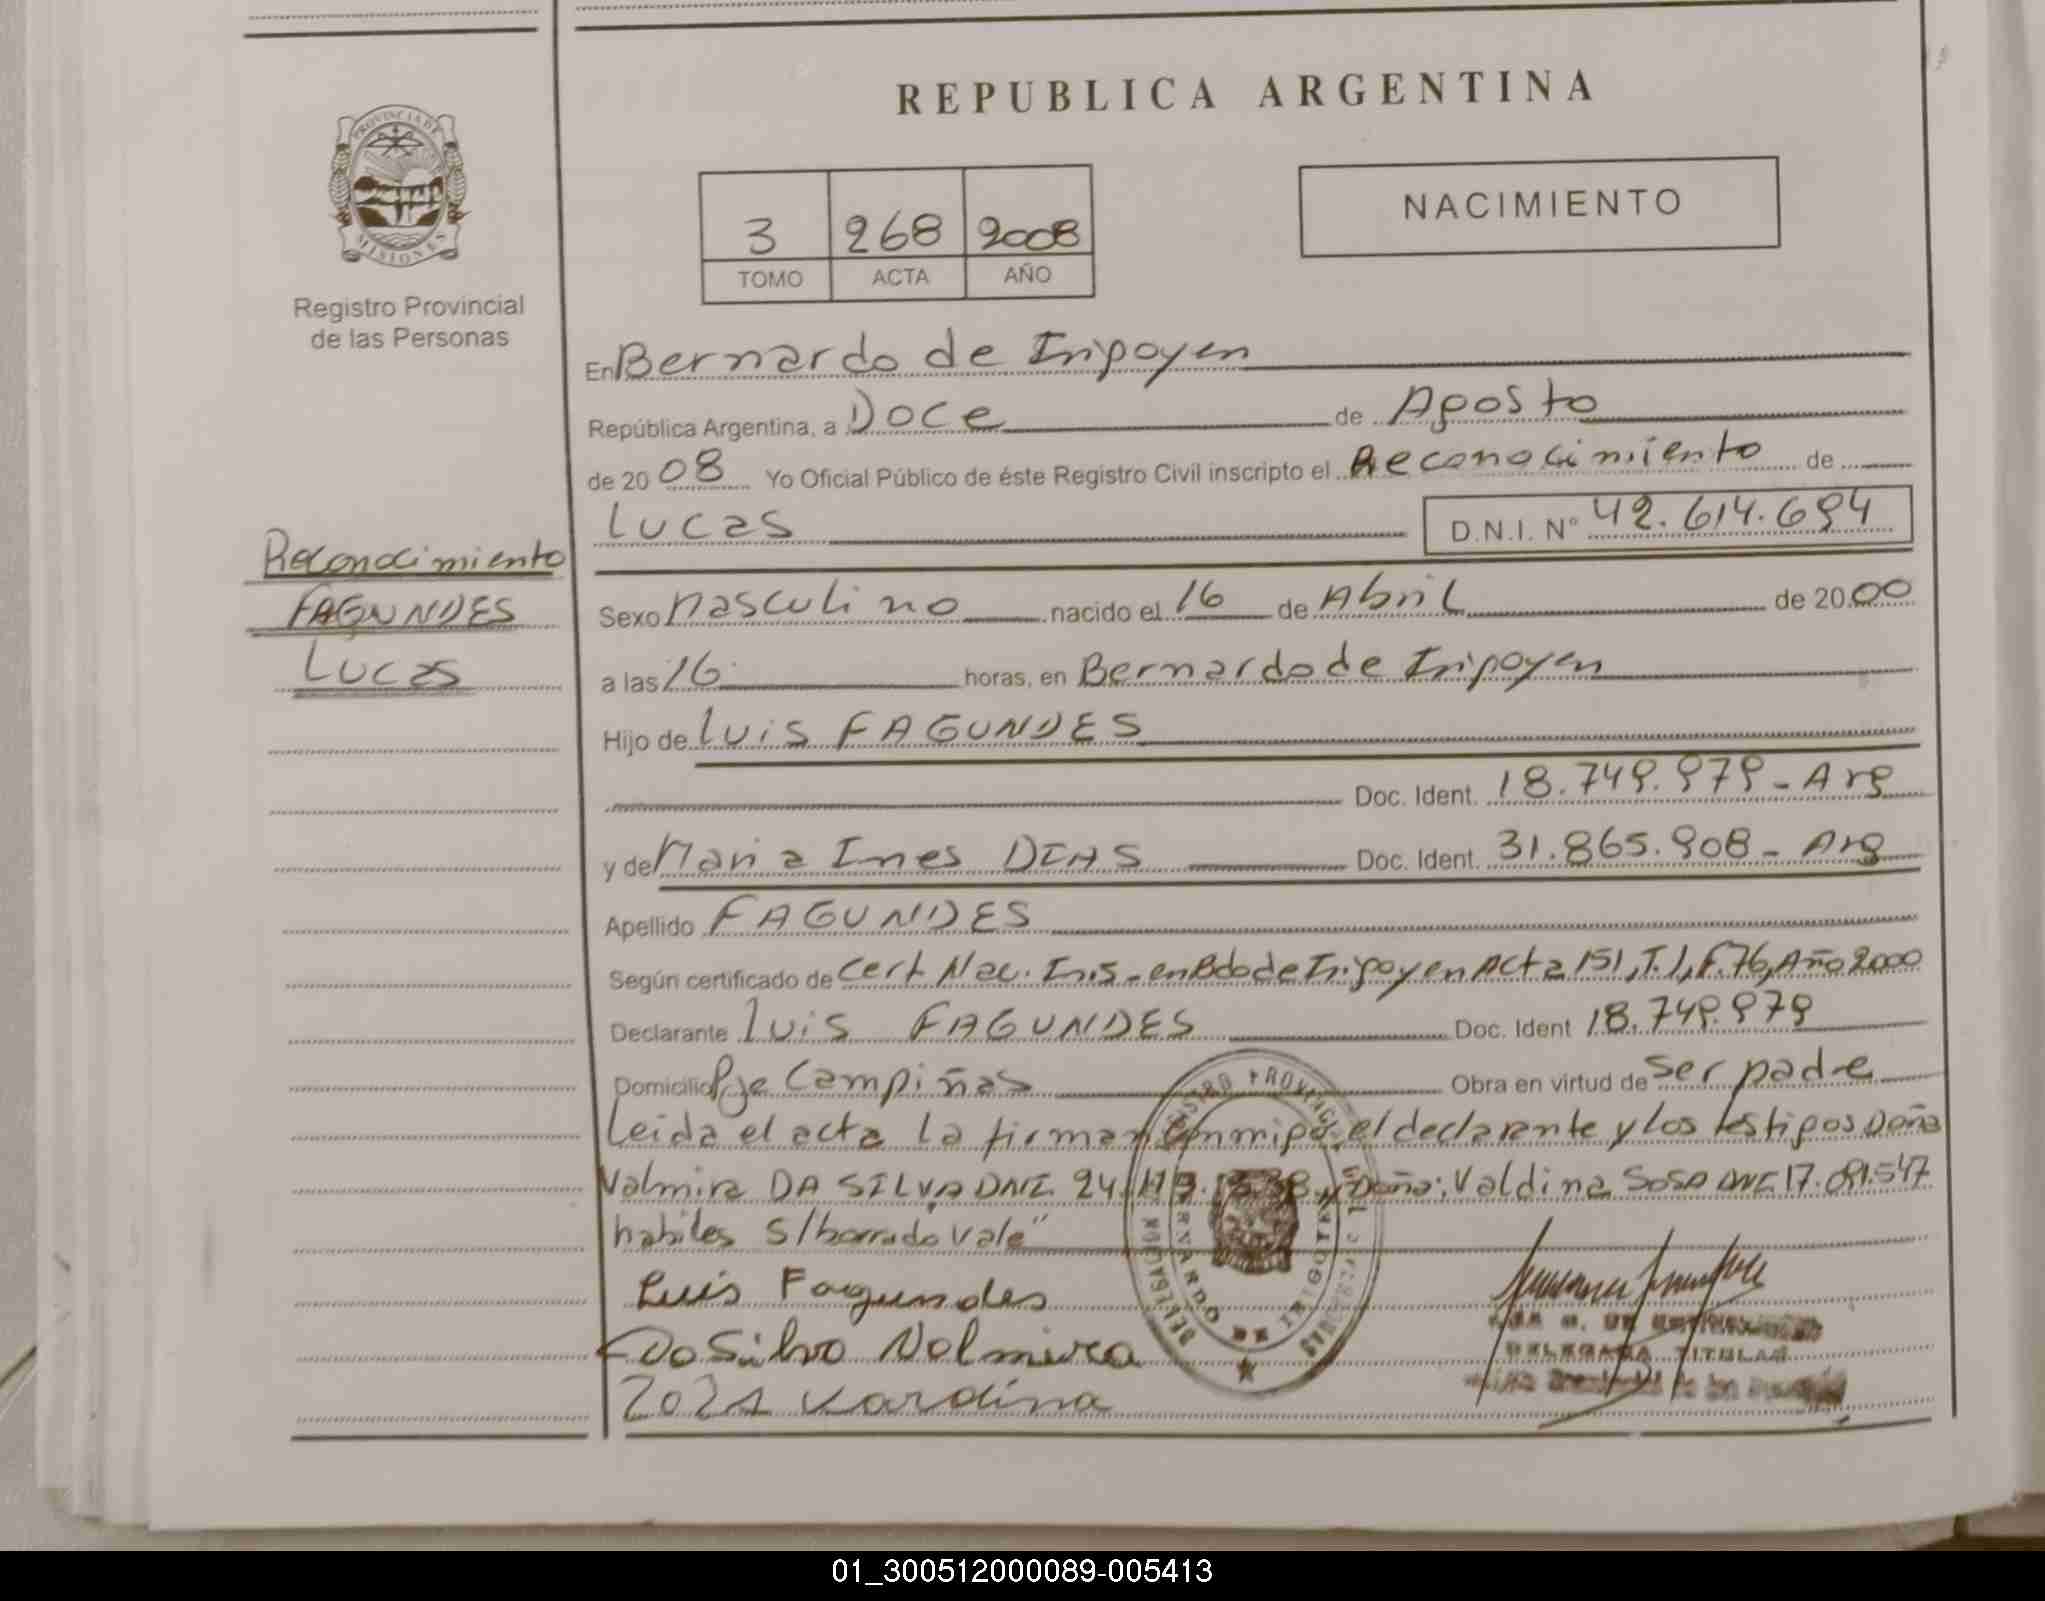 REPUBLICA ARGENTINA
PROVINCIA DE
MISIONES
Registro Provincial
de las Personas
3 268 2008
TOMO ACTA AÑO
NACIMIENTO
En Bernardo de Irigoyen
República Argentina, a Doce de Agosto
de 2008 Yo Oficial Público de éste Registro Civil inscripto el Reconocimiento de
Lucas D.N.I. Nº 42.614.694
Reconocimiento
FAGUNDES
Lucas
Sexo Masculino nacido el 16 de Abril de 2000
a las 16 horas, en Bernardo de Irigoyen
Hijo de Luis FAGUNDES
Doc. Ident. 18.749.979 - Arg
y de Maria Ines DIAS Doc. Ident. 31.865.908 - Arg
Apellido FAGUNDES
Según certificado de Cert Nac. Ins - en Bdo de Irigoyen Acta 151, T.1, F.76, Año 2000
Declarante Luis FAGUNDES Doc. Ident 18.749.979
Domicilio Pje Campiñas Obra en virtud de ser padre
Leida el acta la firman conmigo, el declarante y los testigos Doña
Valmira DA SILVA DNI 24. y Doña: Valdina SOSA DNI 17.091.547
habiles S/borrado Vale"
Luis Fagundes
Da Silva Valmira
DELEGADA TITULAR
BERNARDO DE IRIGOYEN
01_300512000089-005413